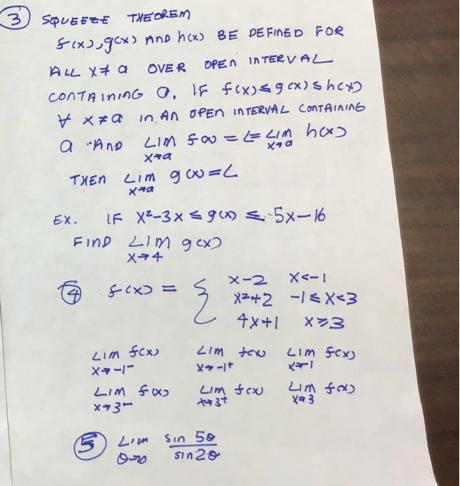 ③ SQUEEZE THEOREM
f(x), g(x) AND h(x) BE DEFINED FOR
ALL X≠a OVER OPEN INTERVAL
CONTAINING a. IF f(x)≤g(x)≤h(x)
∀ x≠a in AN OPEN INTERVAL CONTAINING
a AND LIM x→a f(x) = L = LIM x→a h(x)
THEN LIM x→a g(x)=L
EX. IF X²-3x ≤ g(x) ≤ 5x-16
FIND LIM x→4 g(x)
④ f(x) = { x-2 X<-1
x²+2 -1≤X<3
4x+1 X≥3
LIM x→-1⁻ f(x) LIM x→-1⁺ f(x) LIM x→-1 f(x)
LIM x→3⁻ f(x) LIM x→3⁺ f(x) LIM x→3 f(x)
⑤ LIM θ→0 sin 5θ / sin 2θ